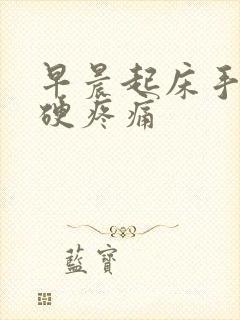 早晨起床手
硬疼痛
藍寶